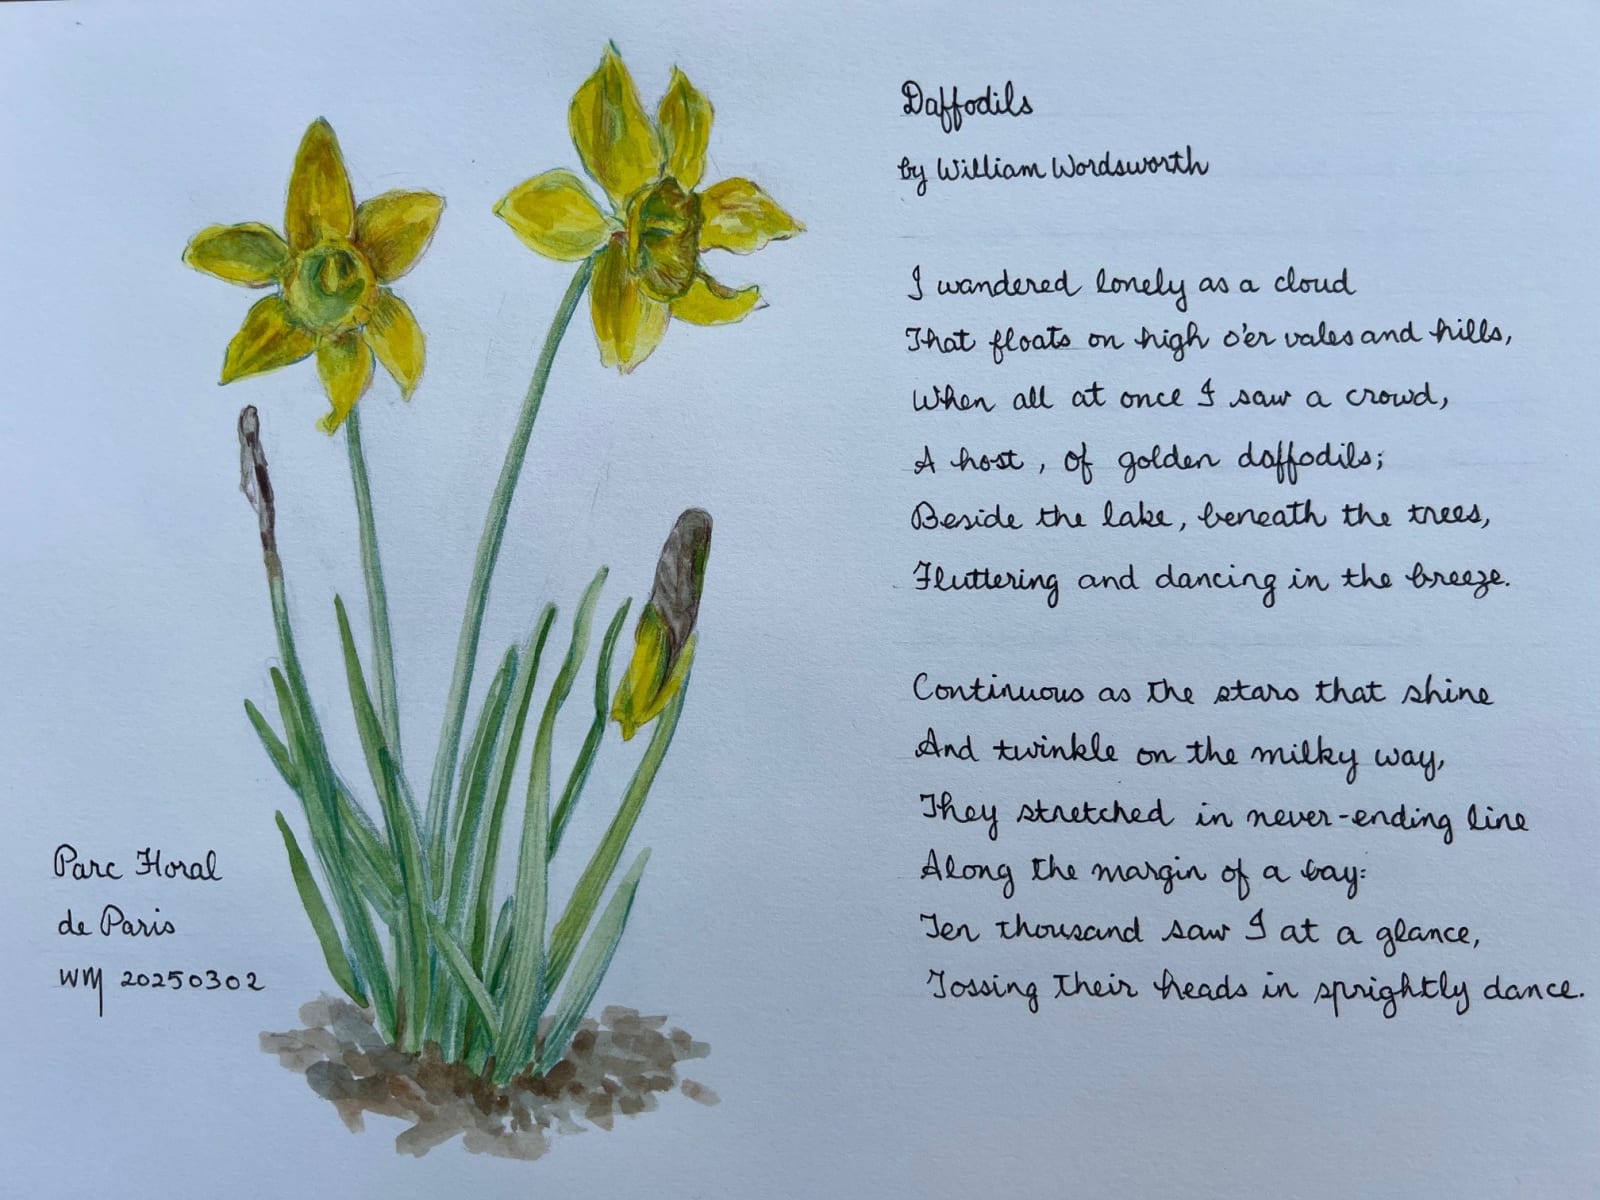 Daffodils
by William Wordsworth
I wandered lonely as a cloud
That floats on high o'er vales and hills,
When all at once I saw a crowd,
A host, of golden daffodils;
Beside the lake, beneath the trees,
Fluttering and dancing in the breeze.
Continuous as the stars that shine
And twinkle on the milky way,
They stretched in never-ending line
Along the margin of a bay:
Ten thousand saw I at a glance,
Tossing their heads in sprightly dance.
Parc Floral
de Paris
WM 20250302